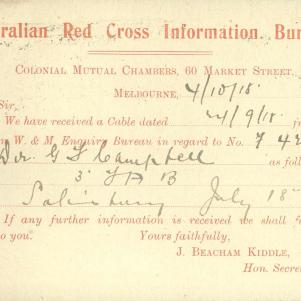 ralian Red Cross Information Bur
Colonial Mutual Chambers, 60 Market Street,
Melbourne, 4/10/18.
Sir,
We have received a Cable dated 24/9/18. f
n W. & M. Enquiry Bureau in regard to No. 742
Dvr. G L Campbell as follo
3. F A B
Salisbury July 18
If any further information is received we shall
to you. Yours faithfully,
J. BEACHAM KIDDLE,
Hon. Secre